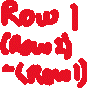 Row 1
(Row 2)
~(Row 1)